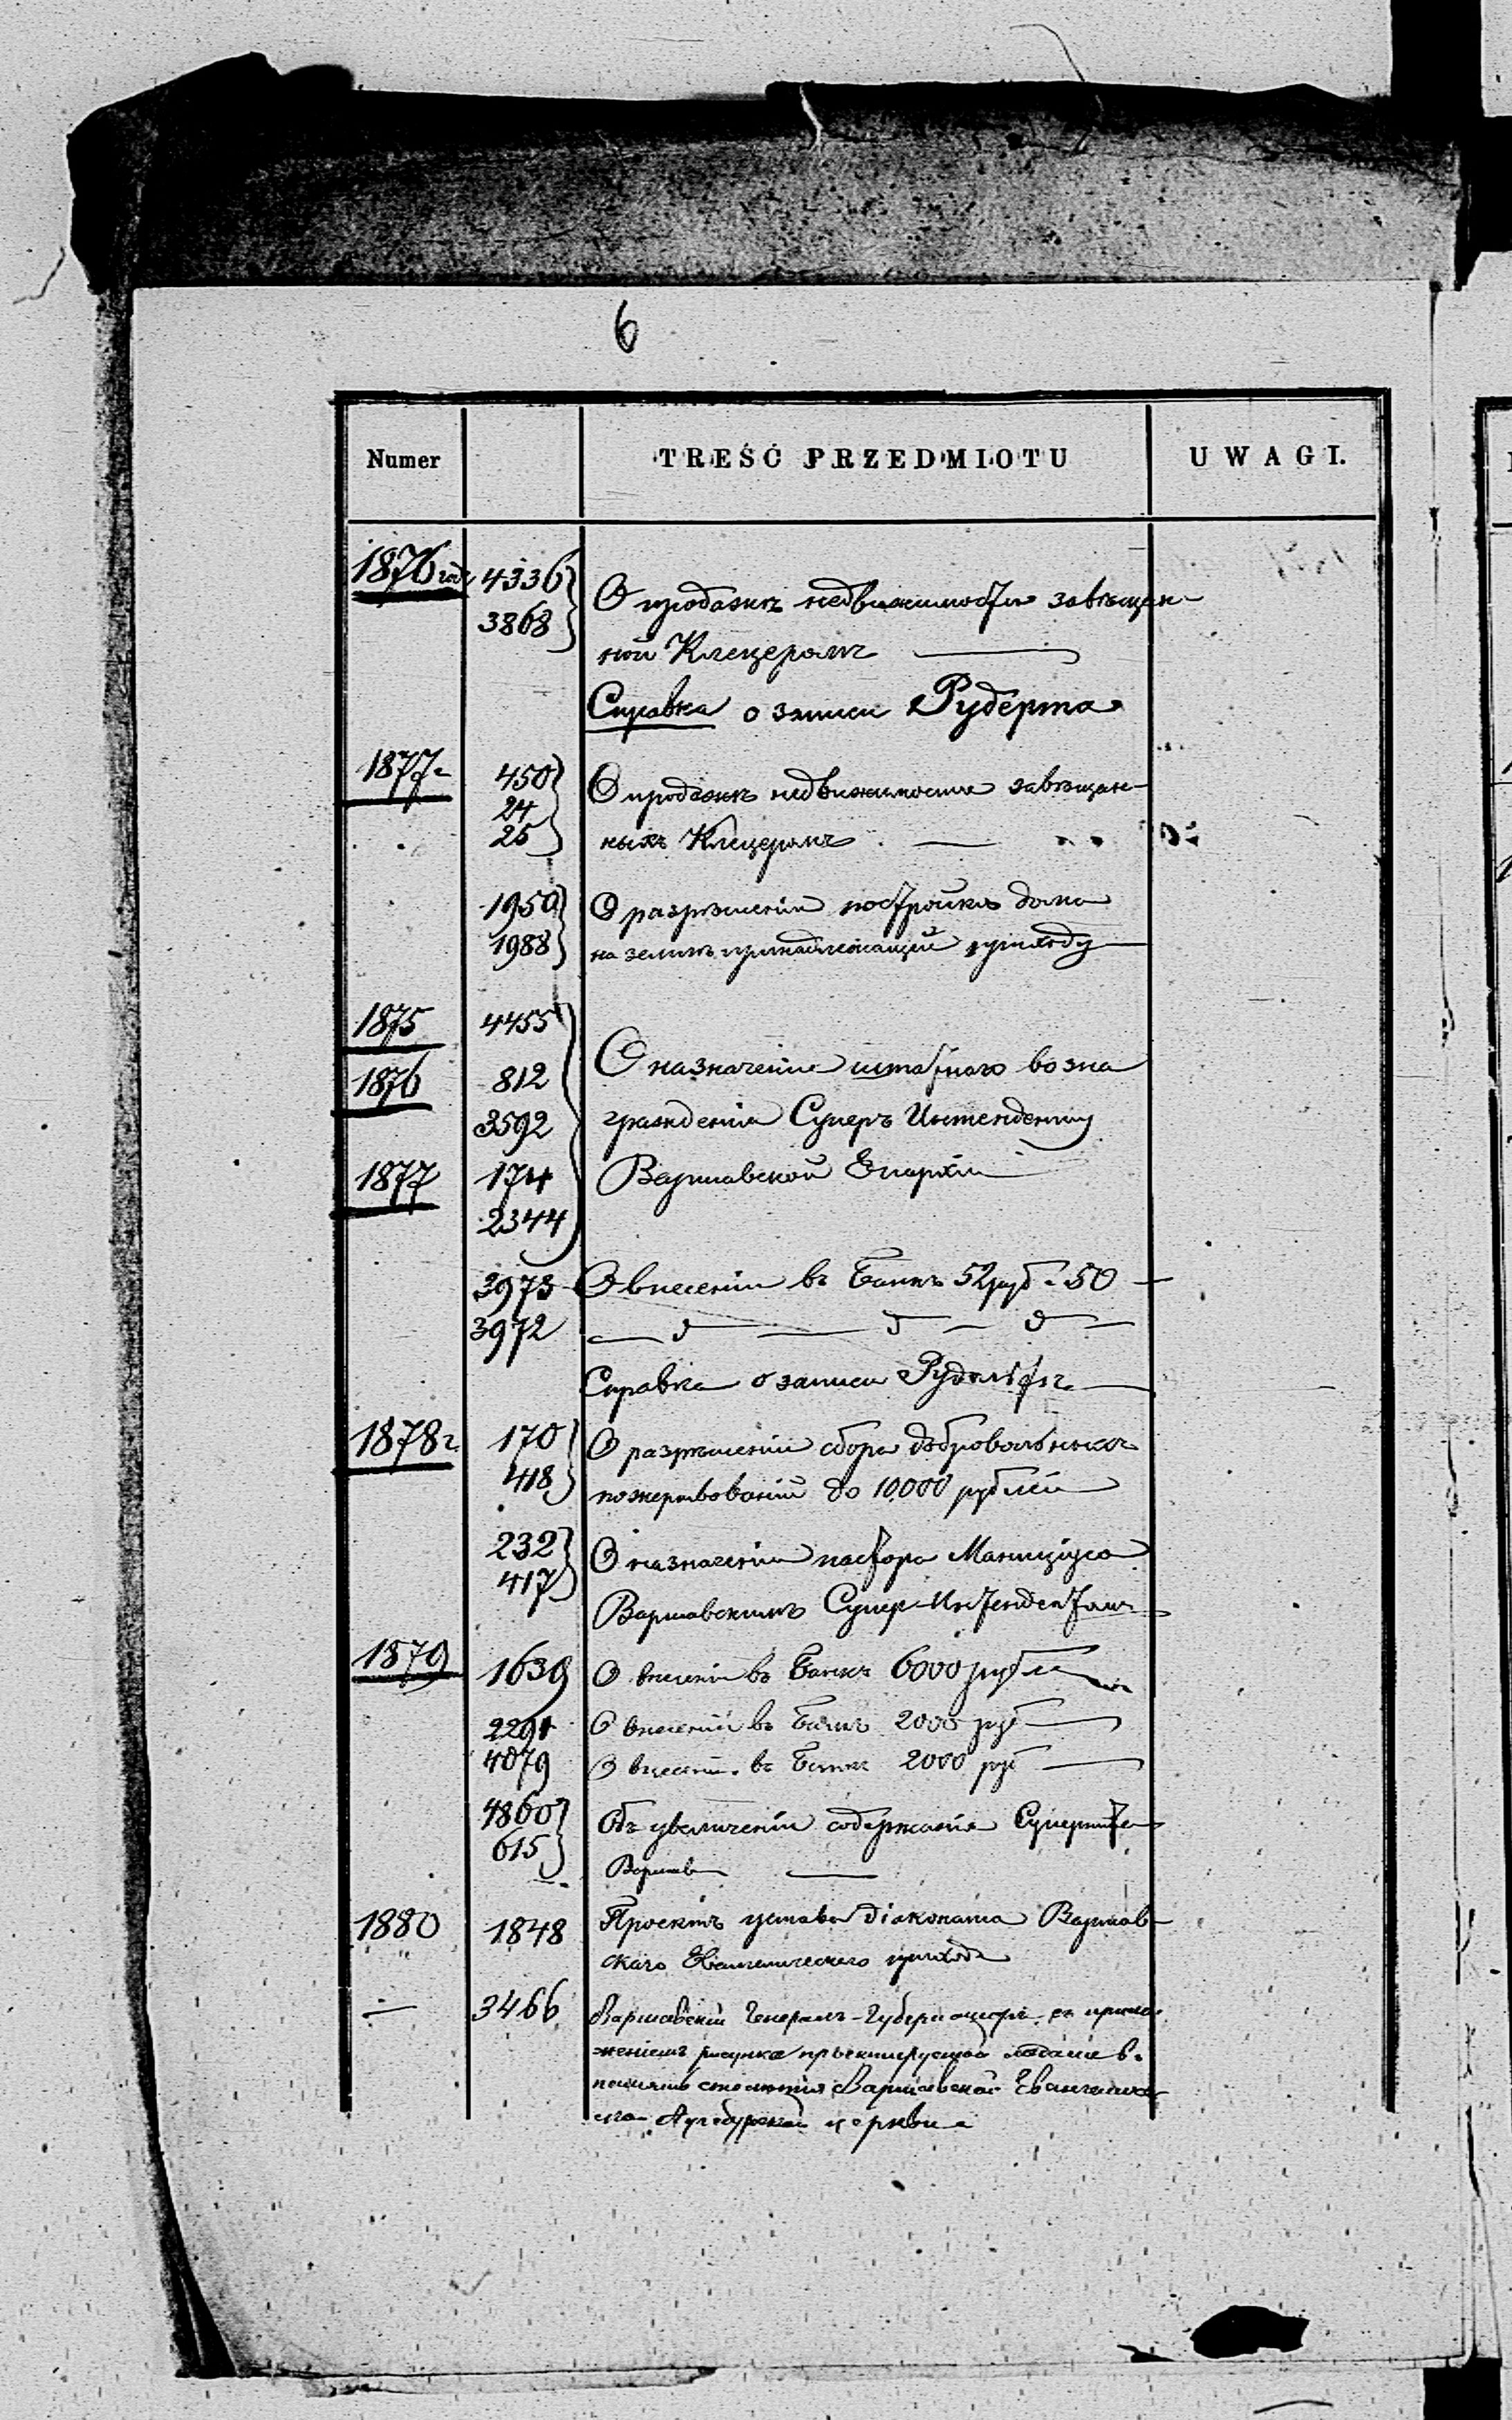 6
Numer TREŚĆ PRZEDMIOTU UWAGI.
1876 года 4336 О продажѣ недвижимости завѣщан-
3868 ной Клецеромъ
Справка о записи Рудерта
1877 г 450 О продажѣ недвижимости завѣщан-
24
25 ныхъ Клецеромъ
1950 О разрѣшеніи постройки дома
1988 на землѣ принадлежащей приходу
1875 4455
О назначеніи штатнаго возна
1876 812
3592 гражденія Суперъ Интенденту
1877 174 Варшавской Епархіи
2344
3973 О внесеніи въ Банкъ 52 руб. 50
3972
Справка о записи
1878 г. 170 О разрѣшеніи сбора добровольныхъ
418 пожертвованій до 10,000 рублей
232 О назначеніи пастора Маниціуса
417
Варшавскимъ Супер-Интендентомъ
1879 1639 О внесеніи въ Банкъ 6000 рублей
2291 О внесеніи въ Банкъ 2000 руб
4079 О внесеніи въ Банкъ 2000 руб
4860 Объ увеличеніи содержанія Суперинте
615 Варшав
1880 1848 Проектъ устава діаконата Варшав-
скаго Евангелическаго прихода
— 3466 Варшавскій Генералъ-Губернаторъ съ прило
женіемъ рисунка
Варшавской Евангеличе
ско-Аугсбургской церкви